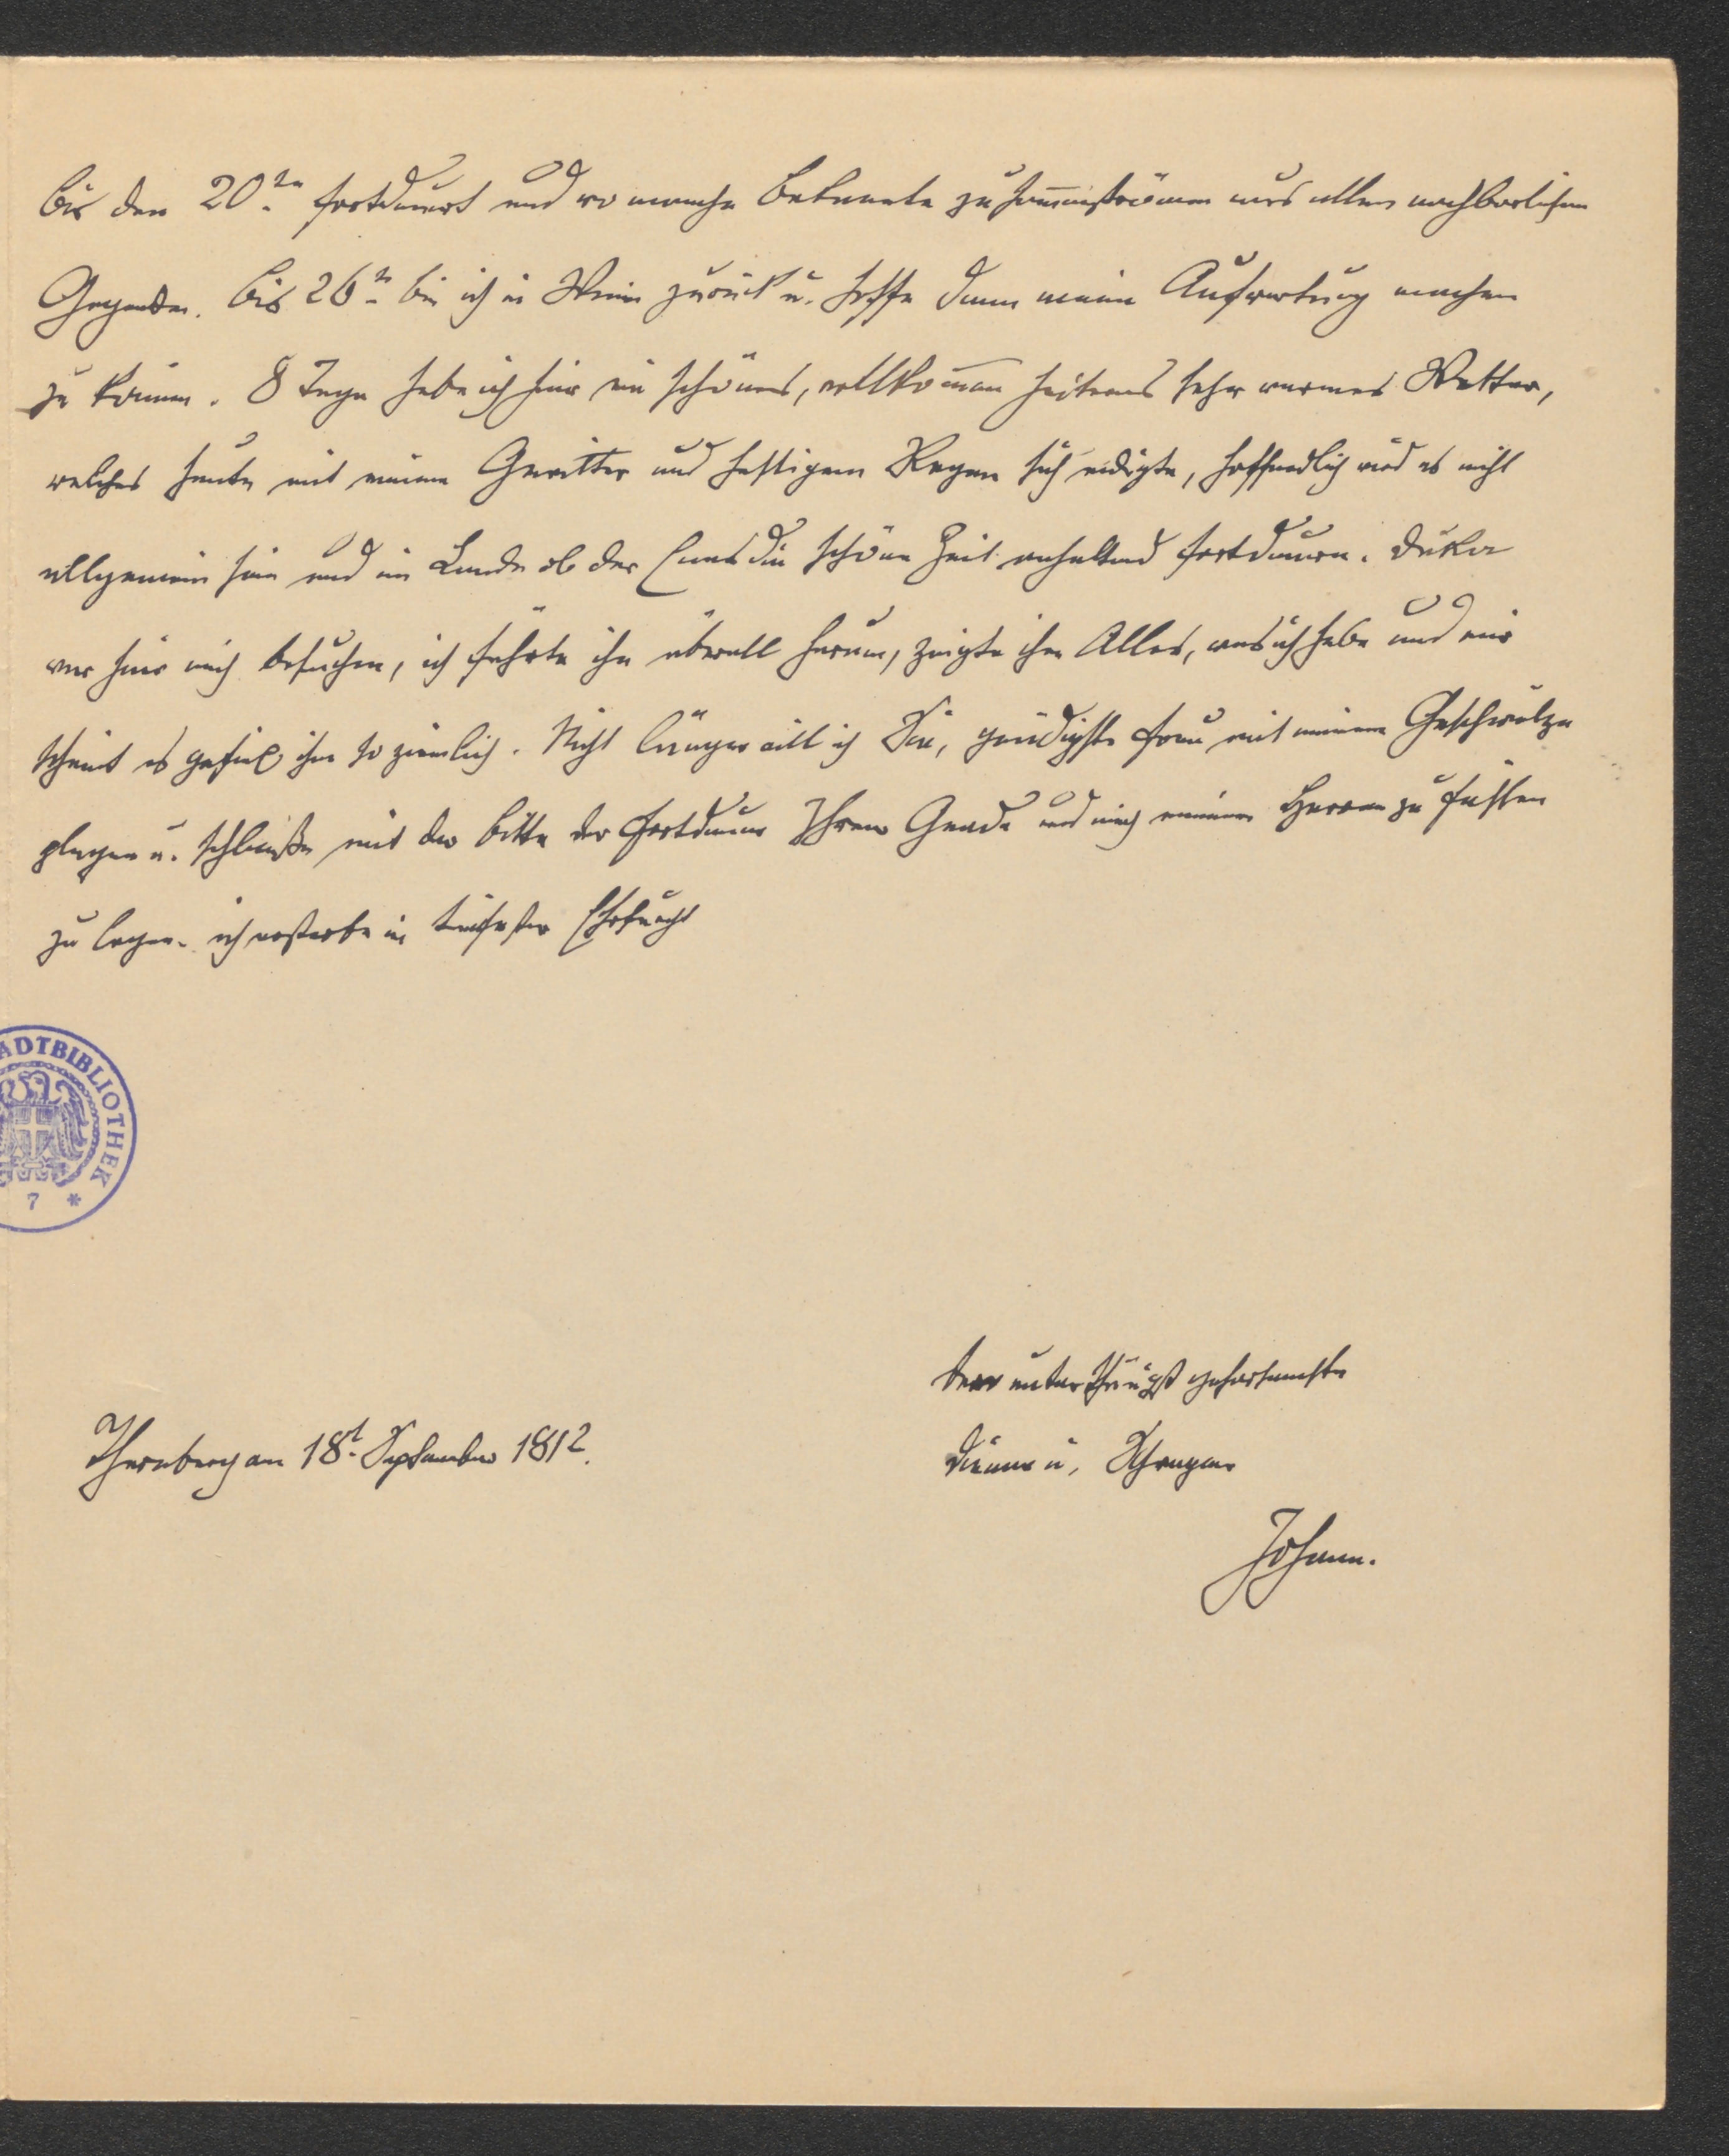 bis den 20tn fortdauert und wo manche Bekannte zusam̄enströmen aus allen nachbarlichen
Gegenden. Bis 26tn bin ich in Wien zurück u. hoffe dann meine Aufwartung machen
zu können. 8 Tage habe ich hier ein schönes, vollkom̄en heiteres sehr warmes Wetter,
welches heute mit einem Gewitter und heftigem Regen sich endigte, hoffendlich wird es nicht
allgemein sein und im Lande ob der Enns die schöne Zeit anhaltend fortdauern. Duka
war hier mich besuchen, ich führte ihn überall herum, zeigte ihm Alles, was ich habe und mir
scheint es gefiel ihm so ziemlich. Nicht länger will ich Sie, gnädigste Frau mit meinem Geschwätze
plagen u. schließe mit der Bitte der Fortdauer Ihrer Gnade und mich meinem Herren zu Füßen
zu legen. ich ersterbe in tiefester Ehrfurcht
ADTBIBLIOTHEK
7 *
der unterthänigst gehorsamste
Thernberg am 18t September 1812.
Diener u. Schwager
Johann.